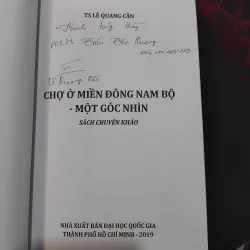 TS LÊ QUANG CẦN
Kính tặng Thầy
Trần Quang
CHỢ Ở MIỀN ĐÔNG NAM BỘ
- MỘT GÓC NHÌN
SÁCH CHUYÊN KHẢO
NHÀ XUẤT BẢN ĐẠI HỌC QUỐC GIA
THÀNH PHỐ HỒ CHÍ MINH - 2019